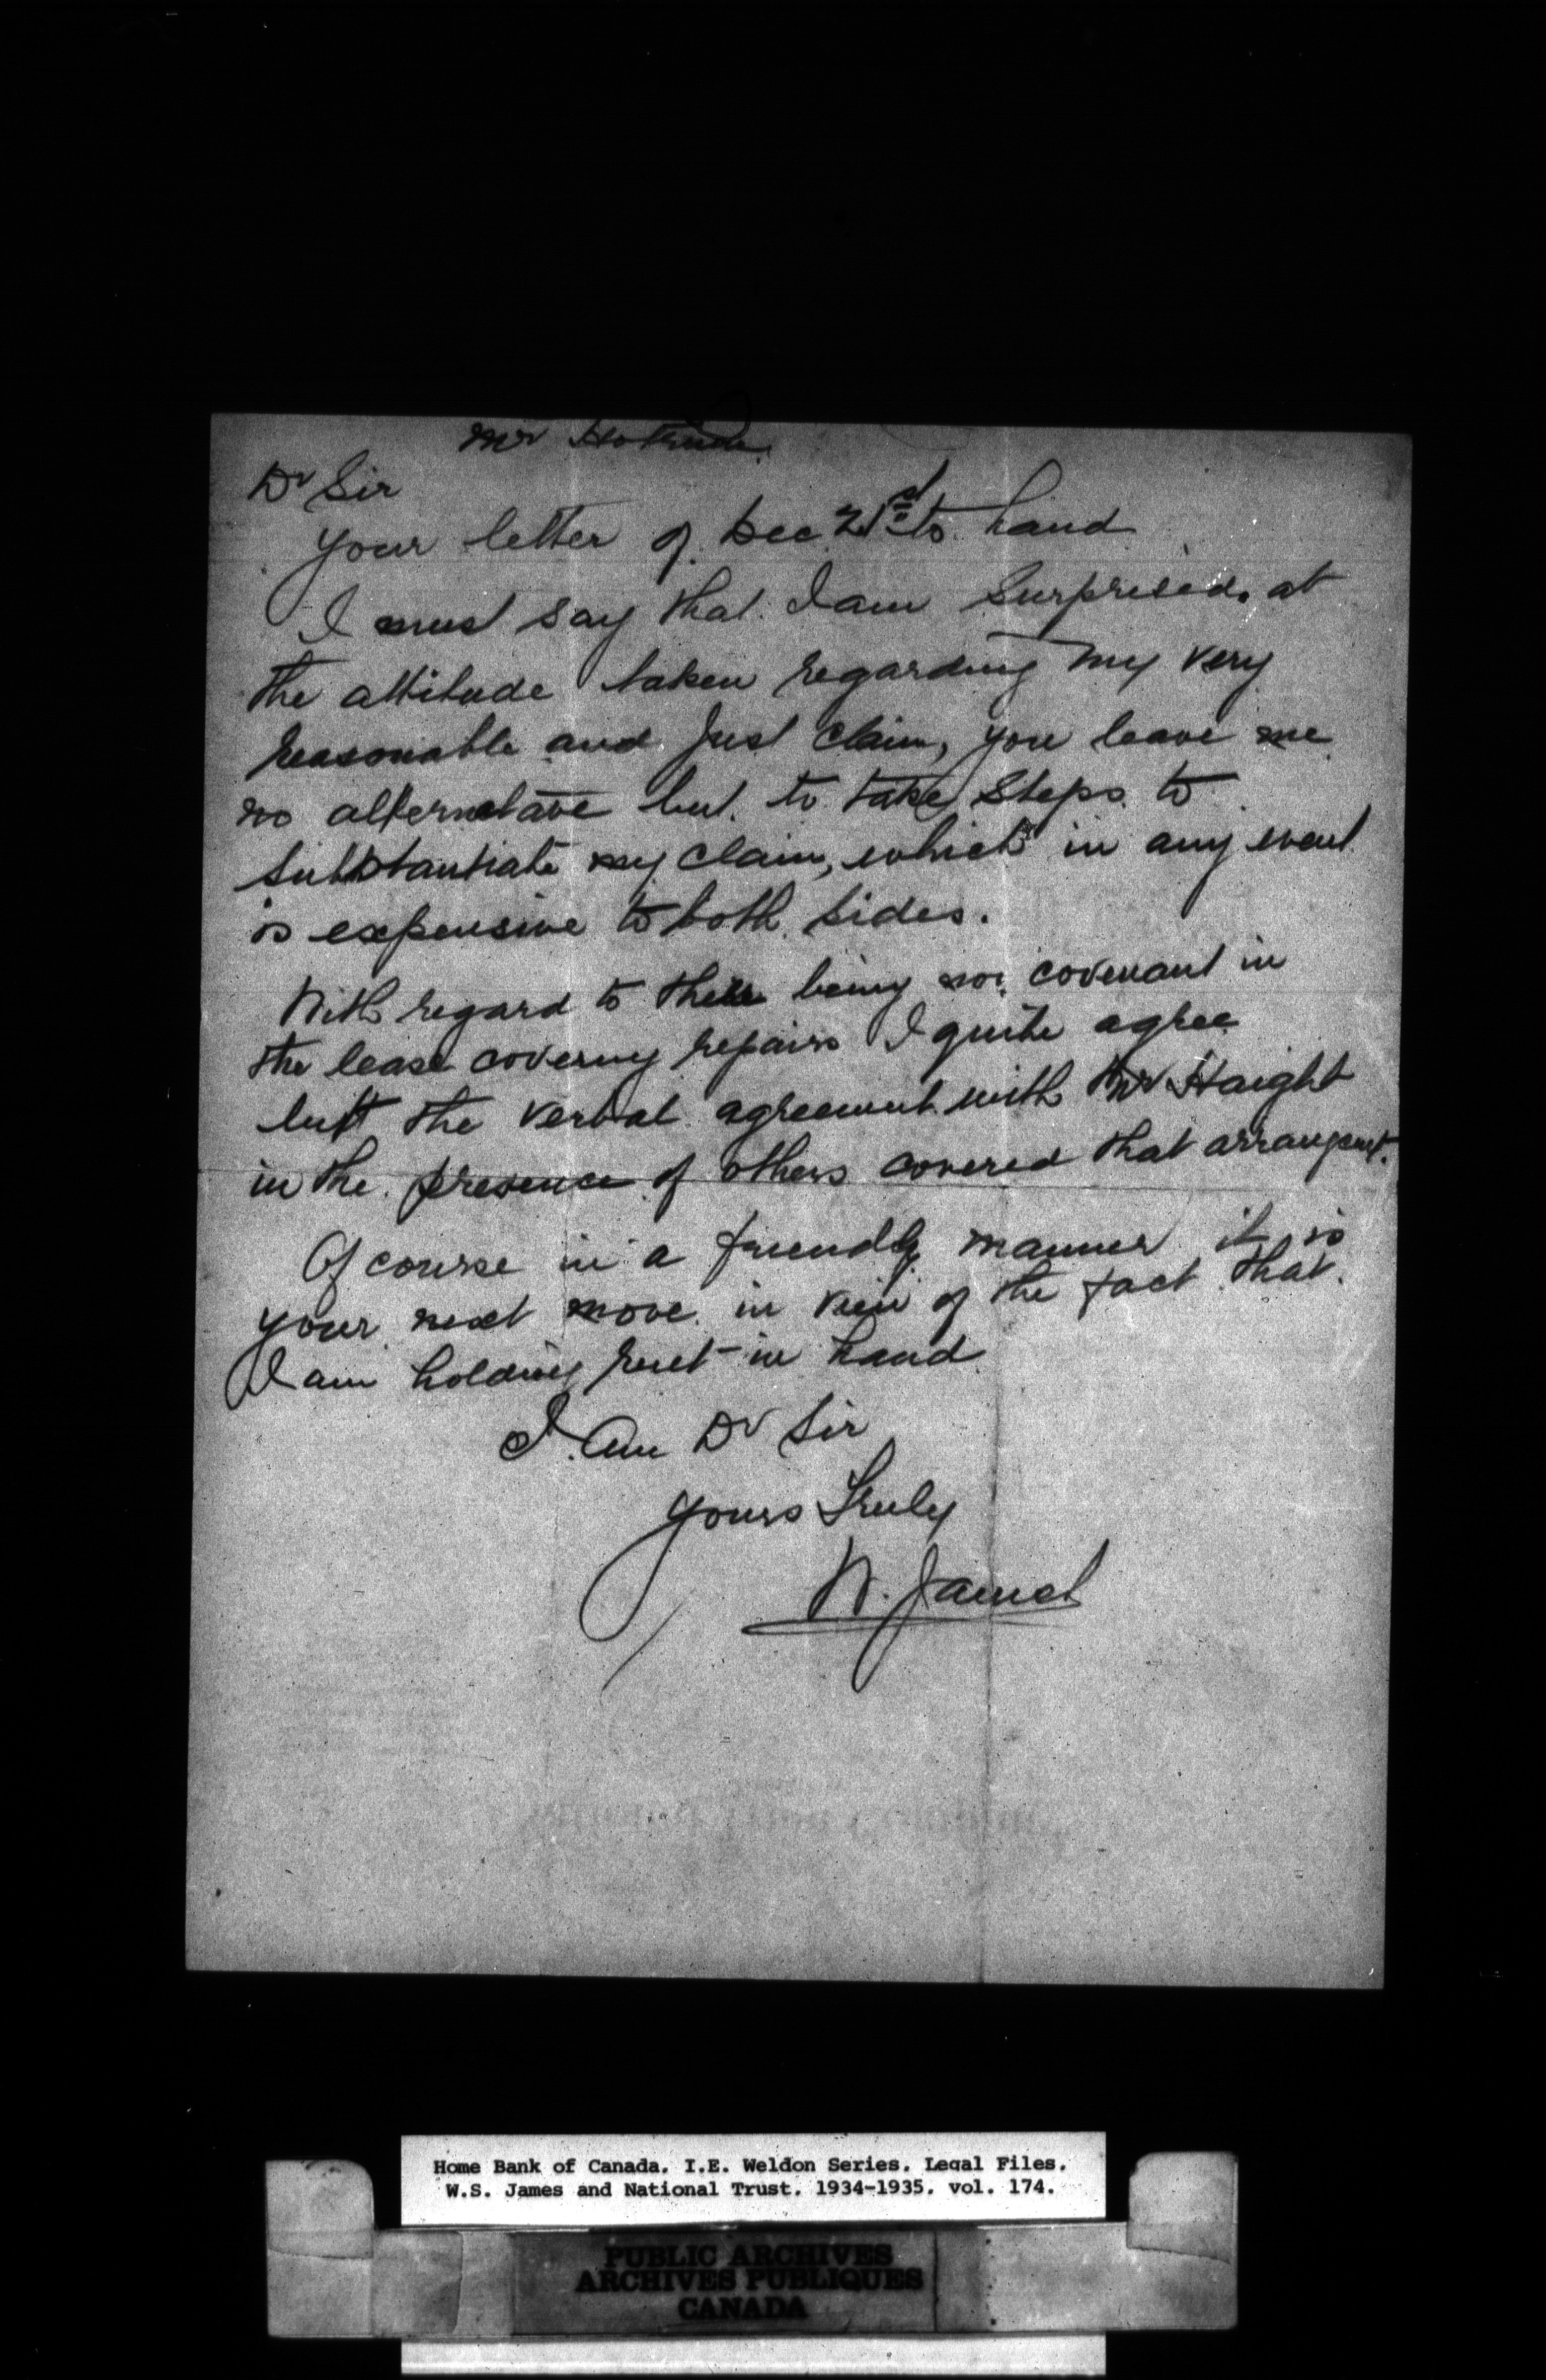 Mr
Dr Sir
Your letter of Dec 21st to hand
I must say that I am surprised at
the attitude taken regarding my very
reasonable and just claim, you leave me
no alternative but to take steps to
substantiate my claim, which in any event
is expensive to both sides.
With regard to there being no covenant in
the lease covering repairs I quite agree
but the verbal agreement with Mr Haight
in the presence of others covered that arrangemt.
Of course in a friendly manner it is
your next move in view of the fact that
I am holding rent in hand
I am Dr Sir
Yours Truly
W. James
Home Bank of Canada. I.E. Weldon Series. Legal Files.
W.S. James and National Trust. 1934-1935. vol. 174.
PUBLIC ARCHIVES
ARCHIVES PUBLIQUES
CANADA